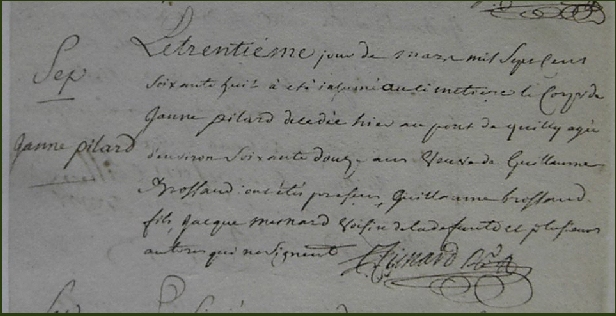 Sep
Janne pilard
Le trentiéme jour de mars mil Sept Cens
soixante huit à eté inhumé au cimetiere le Corps de
Janne pilard decedée hier au pont de quilly agée
d'environ Soixante douze ans Veuve de Guillaume
Brossaud ont étés presens Guillaume brossaud
fils, Jacque menard Voisin de la defunte et plusieurs
autres qui ne signent